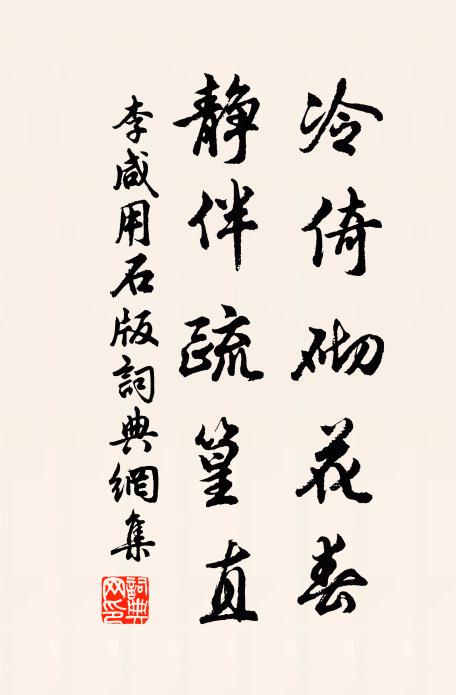 冷倚砌花春
静伴疏篁直
李咸用石版詞典網集
詞典网印